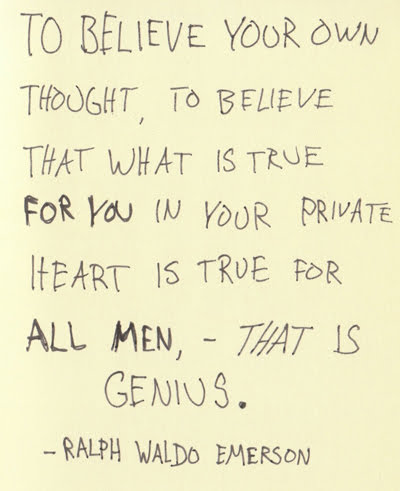 TO BELIEVE YOUR OWN
THOUGHT, TO BELIEVE
THAT WHAT IS TRUE
FOR YOU IN YOUR PRIVATE
HEART IS TRUE FOR
ALL MEN, - THAT IS
GENIUS.
- RALPH WALDO EMERSON